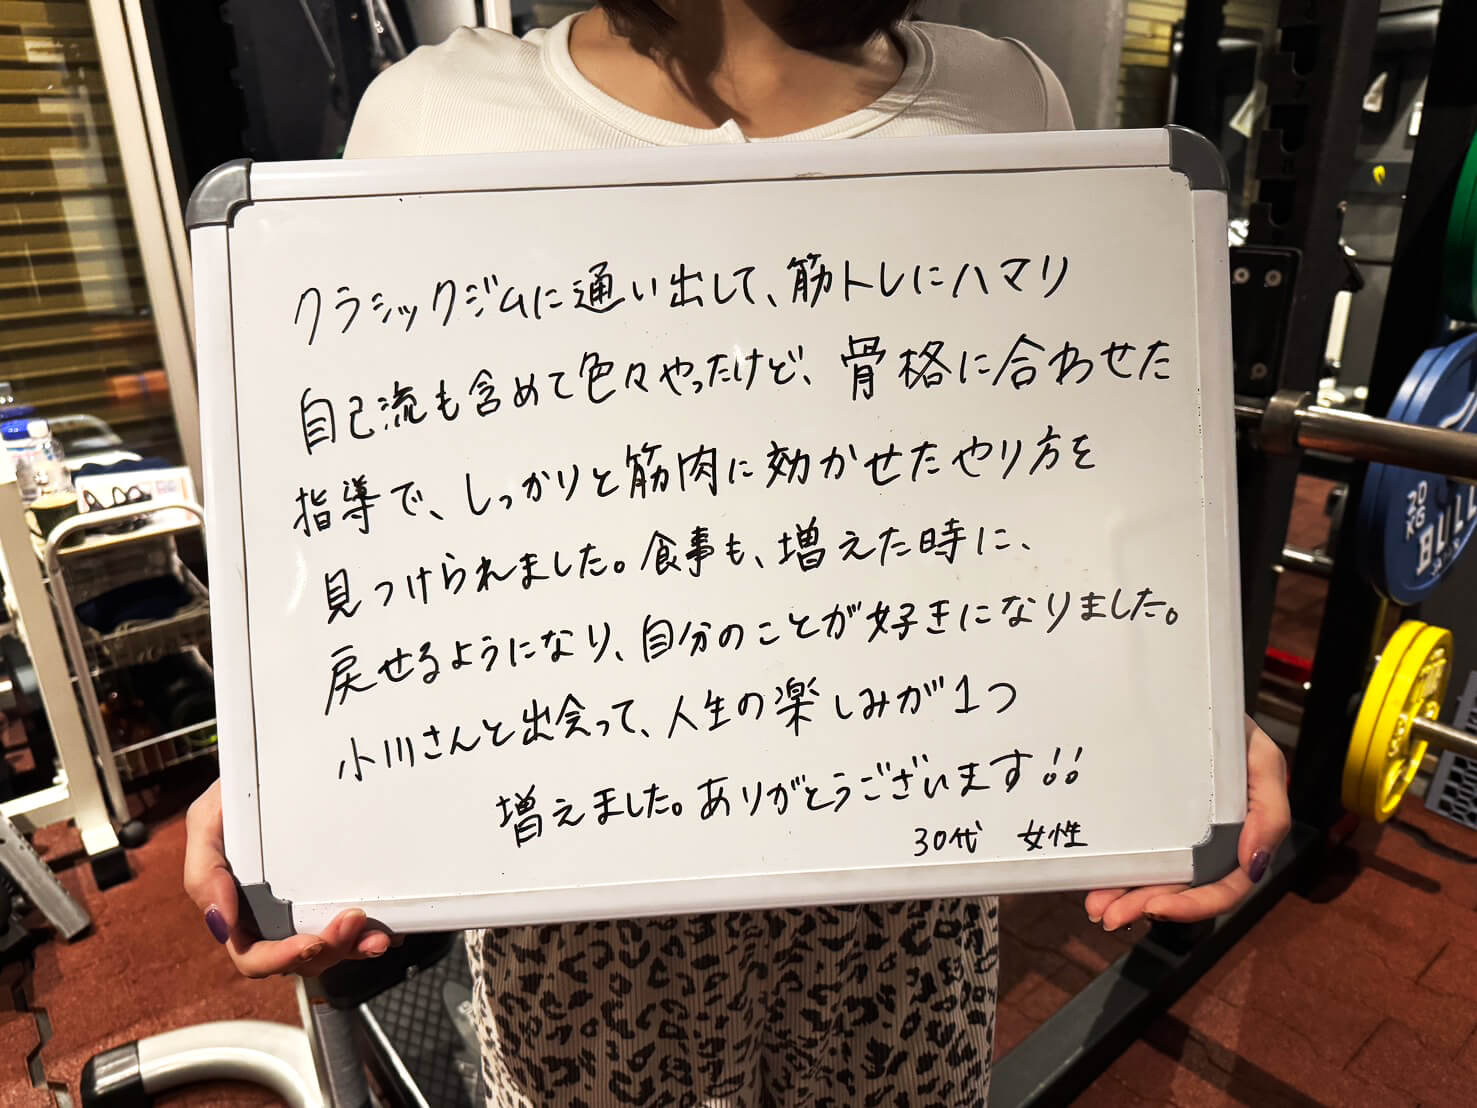 クラシックジムに通い出して、筋トレにハマリ
自己流も含めて色々やったけど、骨格に合わせた
指導で、しっかりと筋肉に効かせたやり方を
見つけられました。食事も、増えた時に、
戻せるようになり、自分のことが好きになりました。
小川さんと出会って、人生の楽しみが1つ
増えました。ありがとうございます!!
30代 女性
20
KG
BULL